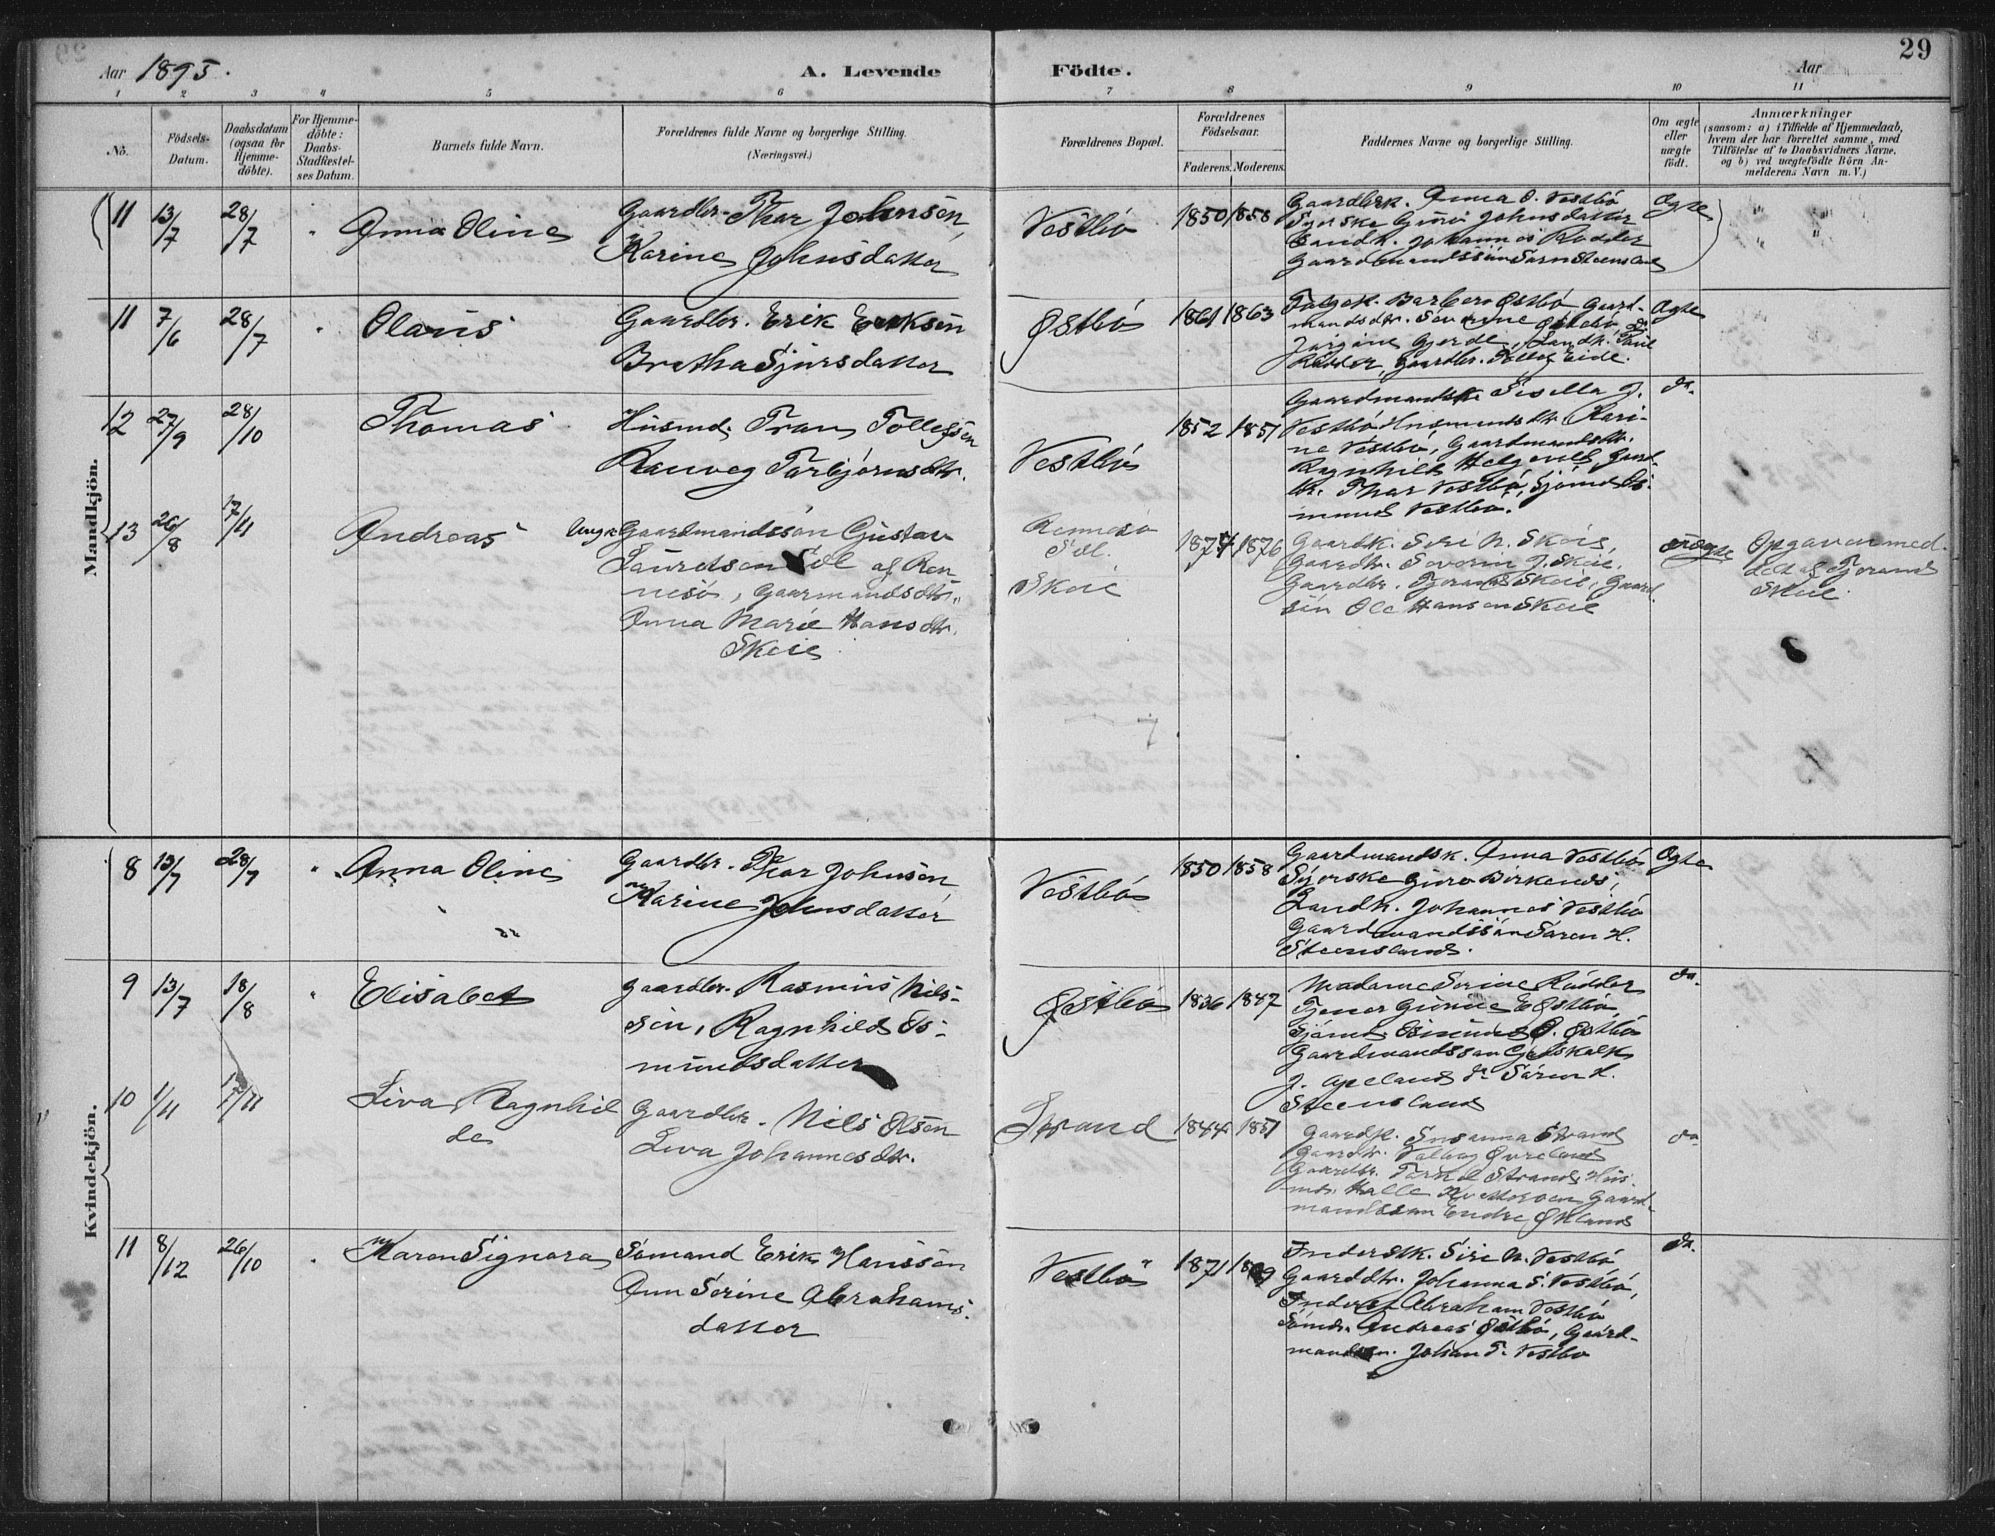 29
Aar 1895.
A. Levende Födte.
Aar
1 2 3 4 5 6 7 8 9 10 11
No.
Födsels-
Datum.
Daabsdatum
(ogsaa for
Hjemme-
döbte).
For Hjemme-
döbte:
Daabs-
Stadfæstel-
ses Datum.
Barnets fulde Navn.
Forældrenes fulde Navne og borgerlige Stilling.
(Næringsvei.)
Forældrenes Bopæl.
Forældrenes
Födselsaar.
Faderens. Moderens.
Faddernes Navne og borgerlige Stilling.
Om ægte
eller
uægte
födt.
Anmærkninger
(saasom: a) i Tilfælde af Hjemmedaab,
hvem der har forrettet samme, med
Tilföielse af to Daabsvidners Navne,
og b) ved uægtefödte Börn An-
melderens Navn m. V.)
Mandkjön.
11 13/7 28/7 " Anna Oline
Gaardbr. Thor Johnsen,
Karine Johnsdatter
Vestbö
1850 1858
Gaardbrk. Anna O. Vestbö
Guro Johnsdatter
Landh. Johannes Rödder
Gaardmandssön Sören Steensland
Ægte
11 7/6 28/7 " Olaus
Gaardbr. Erik Eriksen
Bertha Sjursdatter
Østbö
1861 1863
Barbero Østbö Gaard-
mandsdtr. Severine Østebö,
Jörgine Gjerde, Landh. Paul
Rödder, Gaardbr. Tollef Eide.
Ægte
12 27/9 28/10 Thomas
Husmd. Tran Tollefsen
Ranveg Torbjörnsdtr.
Vestbö
1852 1851
Gaardmandsk. Sisella J.
Vestbö Husmandsdtr. Kari-
ne Vestbö, Gaardmandsdtr.
Ragnhild Helgevold, Gaard-
br. Thor Vestbö, Sjömd. Os-
mund Vestbö.
do.
13 26/8 17/11 Andreas
Ungk. Gaardmandssön Gustav
Lauritsen Sel af Ren-
nesö, Gaarmandsdtr.
Anna Marie Hansdtr.
Skeie
Rennesö
Sel.
Skeie
1874 1876
Gaardk. Siri N. Skeie,
Gaardtr. Severin J. Skeie.
Gaardbr. Tjerand Skeie, Gaard-
sön Ole Hansen Skeie
uægte
Opgaven med-
delt af Tjerand
Skeie.
Kvindekjön.
8 13/7 28/7 " Anna Oline
Gaardbr. Thor Johnsen
Karine Johnsdatter
Vestbö
1850 1858
Gaardmandsk. Anna Vestbö
Guro Birkenes,
Landh. Johannes Vestbö
Gaardmandssön Sören H.
Steensland.
Ægte
9 13/7 18/8 " Elisabet
Gaardbr. Rasmus Nils-
sen, Ragnhild Os-
mundsdatter
Østbö
1836 1847
Madame Serine Rödder
Gurine E Østbö,
Sjömd. Osmund O. Østbö
Gaardmandssön Gotskalk
J. Apeland & Sören H.
Steensland
do.
10 1/11 17/11 Liva Ragnhil
de
Gaardbr. Nils Olsen
Liva Johannesdtr.
Strand
1844 1851
Gaardk. Susanna Strand
Gaardtr. Valborg Øvreland
Gaardbr. Torkel Strand, Hus-
md. Kalle Gaard-
mandssön Endre Økland
do.
11 8/12 26/10 " Karen Signora
Sömand Erik Hanssen
Ann Serine Abrahams-
datter
Vestbö
1871
Inderstk. Siri N. Vestbö
Gaarddtr. Johanna S. Vestbö,
Inderst Abraham Vestbö
Sömd. Andreas Østbö, Gaard-
mandssn. Johan T. Vestbö
do.